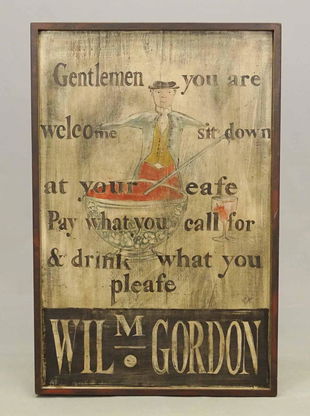 Gentlemen you are
welcome sit down
at your eafe
Pay what you call for
& drink what you
pleafe
WILM GORDON